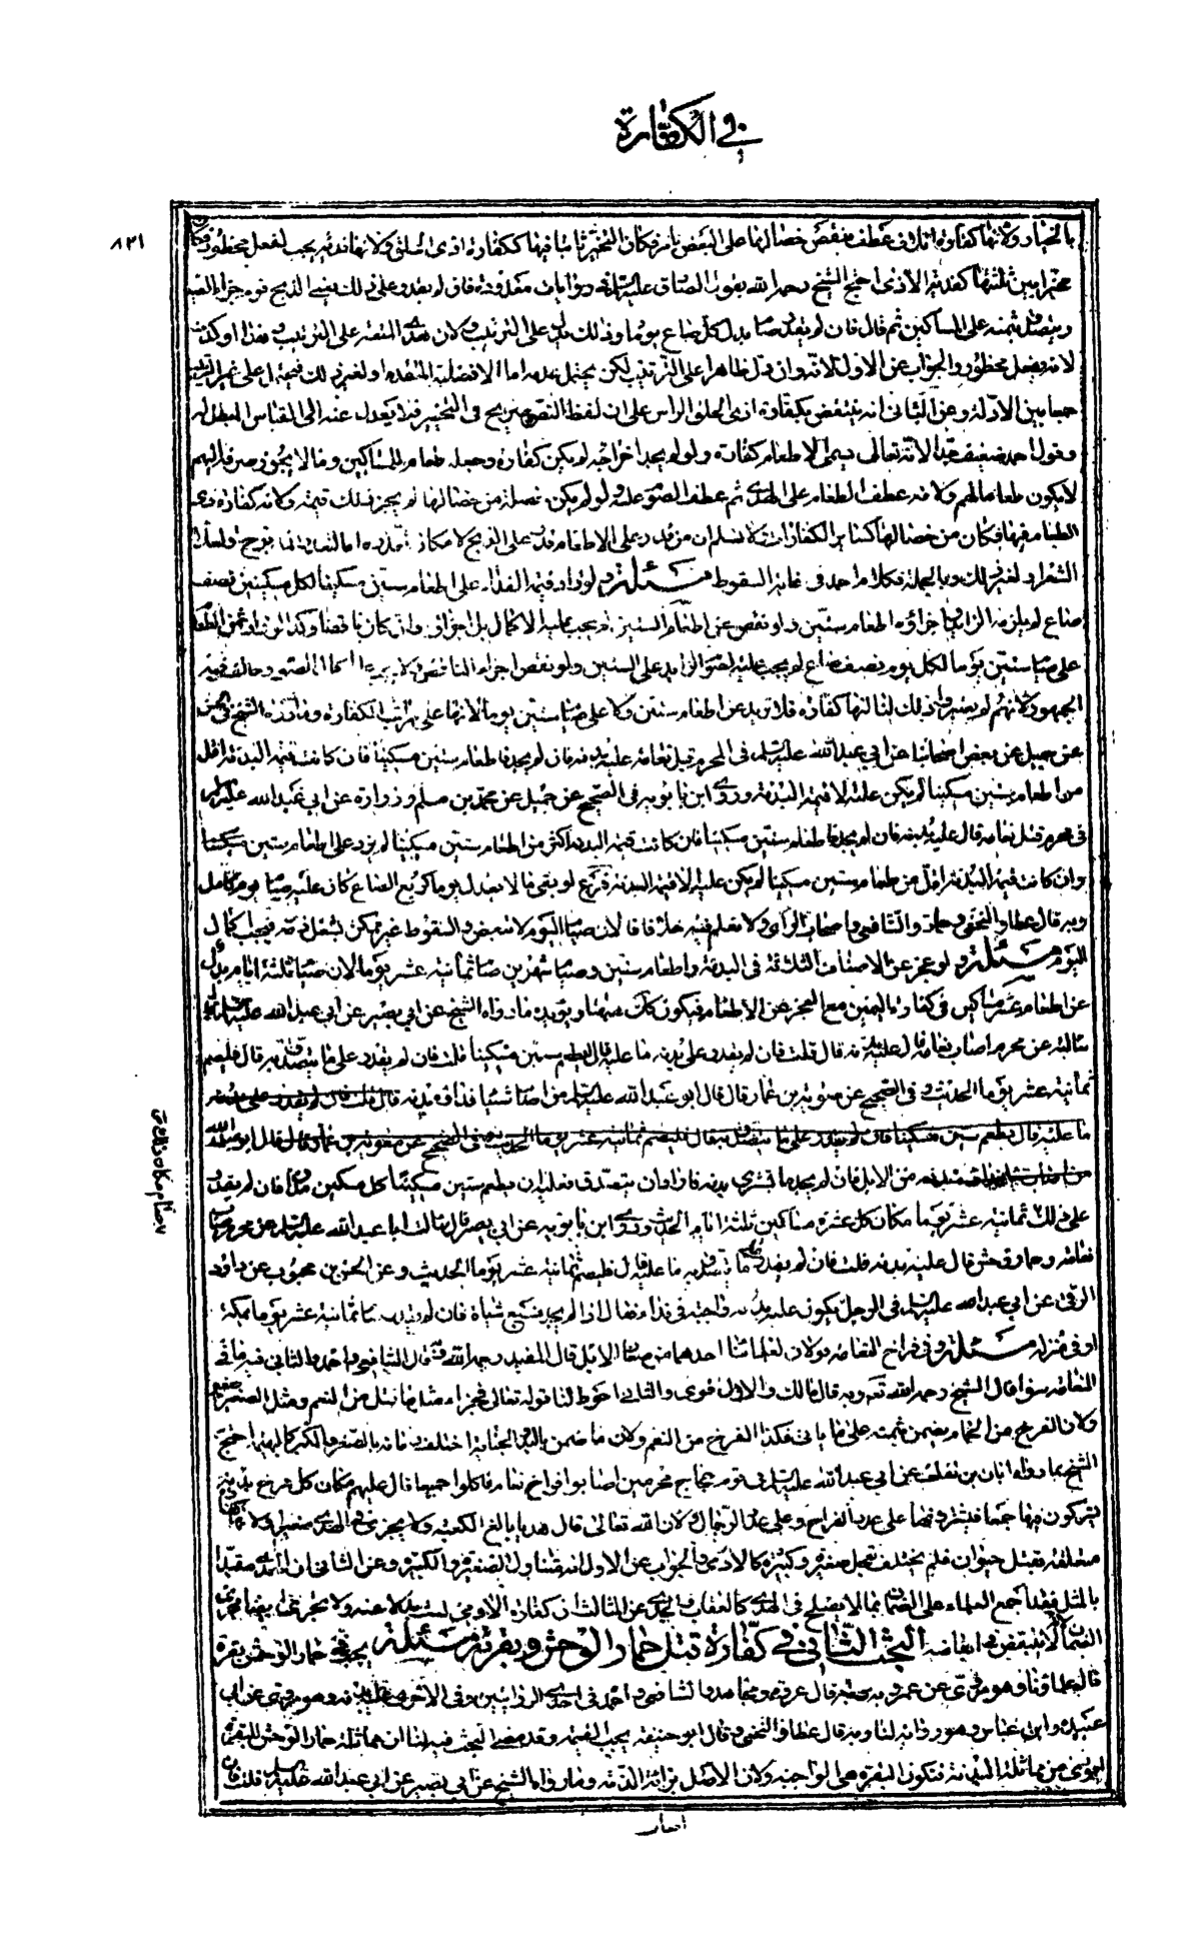 في الكفارة
٨٢١
بالخيار ولانها كفارة اتلاف عطف بعض خصالها على البعض باو فكان التخيير ثابتا فيها ككفارة اذى الحلق ولانها فدية يجب لفعل محظور فكان
مخيرا بين ثلثتها كفدية الاذى احتج الشيخ رحمه الله بقول الصادق عليه السلام
ويتصدق بثمنه على المساكين ثم قال فان لم يقدر صام بدل كل صاع يوما وذلك يدل على الترتيب ولان هدي المتعة على الترتيب وهذا اوكد
لانه بفعل محظور والجواب عن الاول انه وان دل ظاهرا على الترتيب لكن يحتمل
جمعا بين الادلة وعن الثاني انه ينتقض بكفارة اذى الحلق الراس على ان لفظ النص صريح في التخيير فلا يعدل عنه الى القياس
وقول احمد ضعيف جدا لانه تعالى سمى الاطعام كفارة ولو لم يجب اخراجه لم يكن كفارة وجعله طعام للمساكين وما لا يجوز صرفه اليهم
لا يكون طعاما لهم ولانه عطف الطعام على الهدي ثم عطف الصوم عليه ولو لم يكن خصلة من خصالها لم يجز ذلك فيه ولانه كفارة ذكر
الطعام فيها فكان من خصالها كسائر الكفارات ولا نسلم ان من قدر على الاطعام قدر على الذبح
الشعر او لغير ذلك وبالجملة فكلام احمد في غاية السقوط مسئلة ولو زاد قيمة الفداء على اطعام ستين مسكينا لكل مسكينين نصف
صاع لم يلزمه الزائد واجزاؤه اطعام ستين ولو نقص عن اطعام الستين لم يجب عليه الاكمال بل اجزاه وان كان ناقصا وكذا لو زاد ثمن الطعام
على صيام ستين يوما لكل يوم نصف صاع لم يجب عليه صوم الزايد على الستين ولو نقص اجزاه الناقص
الجمهور لانهم لم يعتبروا ذلك لنا انها كفارة فلا تزيد عن اطعام ستين ولا على صيام ستين يوما لانها على مراتب الكفارة وما رواه الشيخ في
عن جميل عن بعض اصحابنا عن ابي عبد الله عليه السلام في المحرم قتل نعامة عليه بدنة فان لم يجد فاطعام ستين مسكينا فان كانت قيمة البدنة اقل
من اطعام ستين مسكينا لم يكن عليه الا قيمة البدنة وروى ابن بابويه في الصحيح عن جميل عن محمد بن مسلم وزرارة عن ابي عبد الله عليه السلام
في محرم قتل نعامة قال عليه بدنة فان لم يجد فاطعام ستين مسكينا فان كانت قيمة البدنة اكثر من اطعام ستين مسكينا لم يزد على اطعام ستين مسكينا
وان كانت قيمة البدنة اقل من طعام ستين مسكينا لم يكن عليه الا قيمة البدنة فرع لو بقى ما لا يعدل يوما كربع الصاع كان عليه صيام يوم كامل
وبه قال عطاء والنخعي وحماد والشافعي واصحاب الراى ولا نعلم فيه خلافا لان صيام اليوم لا يتبعض والسقوط غير ممكن لشغل ذمته فيجب اكمال
اليوم مسئلة ولو عجز عن الاصناف الثلاثة في البدنة واطعام ستين وصيام شهرين صام ثمانية عشر يوما لان صيام ثلثة ايام بدل
عن اطعام عشرة مساكين في كفارة اليمين مع العجز عن الاطعام فيكون كك هيهنا ويؤيده ما رواه الشيخ عن ابي بصير عن ابي عبد الله عليه السلام
سالته عن محرم اصاب نعامة قال عليه بدنة قال قلت فان لم يقدر على بدنة ما عليه قال يطعم ستين مسكينا قلت فان لم يقدر على ما يتصدق به قال فليصم
ثمانية عشر يوما الحديث وفي الصحيح عن معوية بن عمار قال قال ابو عبد الله عليه السلام من اصاب شيئا فداؤه بدنة قال قلت فان لم يقدر على بدنة
ما عليه قال يطعم ستين مسكينا فان لم يقدر على ما يتصدق به قال فليصم ثمانية عشر يوما الحديث وفي الصحيح عن معوية بن عمار قال قال ابو عبد الله
من الابل فان لم يجد ما يشتري بدنة فاراد ان يتصدق فعليه ان يطعم ستين مسكينا كل مسكين مدا فان لم يقدر
على ذلك صام ثمانية عشر يوما مكان كل عشرة مساكين ثلثة ايام الحديث وروى ابن بابويه عن ابي بصير قال سالت ابا عبد الله عليه السلام عن محرم اصاب
نعامة وحمار وحش قال عليه بدنة قلت فان لم يقدر على ما يتصدق به ما عليه قال فليصم ثمانية عشر يوما الحديث وعن الحسن بن محبوب عن داود
الرقي عن ابي عبد الله عليه السلام في الرجل يكون عليه بدنة واجبة في فداء فقال اذا لم يجد فسبع شياة فان لم يقدر صام ثمانية عشر يوما بمكة
او في منزله مسئلة وفي فراخ النعامة قولان لعلمائنا احدهما من صغار الابل قال المفيد رحمه الله وبه قال الشافعي واحمد والثاني فيه ما في
النعامة سواء قال الشيخ رحمه الله تعه وبه قال مالك والاول اقوى والثاني احوط لنا قوله تعالى فجزاء مثل ما قتل من النعم ومثل الصغير صغير
ولان الفرخ من الحمام يضمن بمثله على ما ياتي فكذا الفرخ من النعم ولان ما ضمن باليد والجناية اختلف ضمانه بالصغر والكبر كالبهيمة احتج
الشيخ بما رواه ابان بن تغلب عن ابي عبد الله عليه السلام في قوم حجاج محرمين اصابوا افراخ نعام فاكلوا جميعا قال عليهم مكان كل فرخ بدنة
يشتركون فيها جميعا فيشترونها على عدد الفراخ وعلى عدد الرجال ولان الله تعالى قال هديا بالغ الكعبة ولا يجزي في الهدي صغير ولانها كفارة
متعلقة بقتل حيوان فلم يختلف بقتل صغيره وكبيره كالادمي والجواب عن الاول انه يتناول الصغيرة والكبيرة وعن الثاني ان الهدي مقيد
بالمثل
البحث الثاني في كفارة قتل حمار الوحش وبقرته مسئلة يجب في حمار الوحش بقرة
قاله علماؤنا وهو مروي عن عمر وبه قال عروة ومجاهد والشافعي واحمد في احدى الروايتين وفي الاخرى عليه بدنة وهو مروي عن ابي
عبيدة وابن عباس وهو رواية لنا وبه قال عطا والنخعي وقال ابو حنيفة يجب القيمة وقد مضى البحث فيه لنا ان مماثلة حمار الوحش للبقرة
اقوى من مماثلة البدنة فتكون البقرة هي الواجبة ولان الاصل براءة الذمة وما رواه الشيخ عن ابي بصير عن ابي عبد الله عليه السلام قلت فان
اصاب